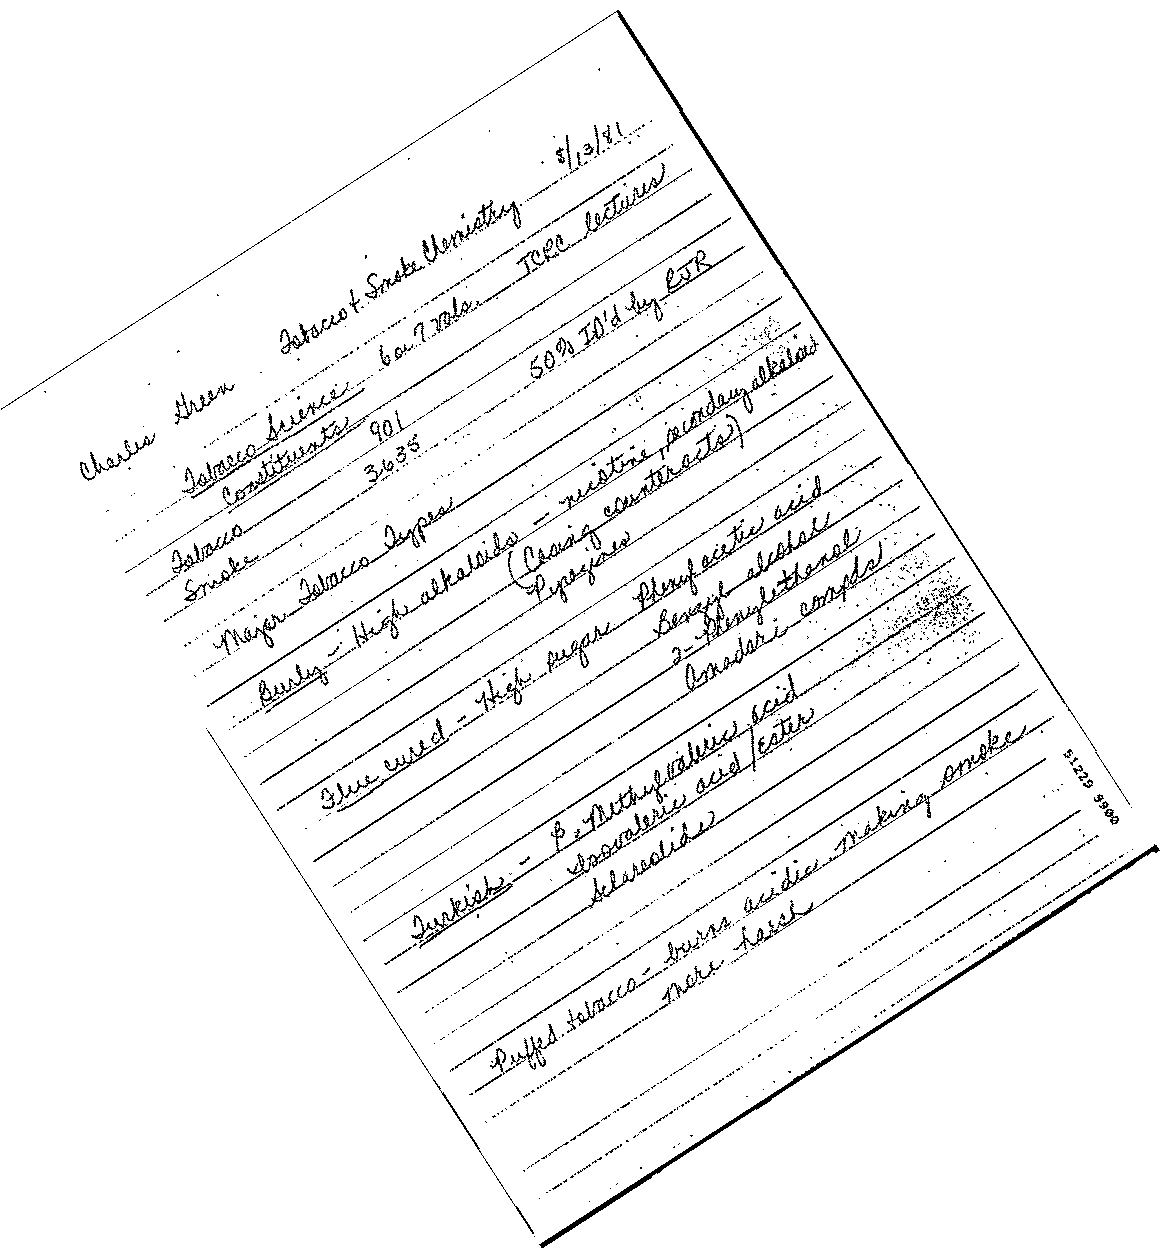 Charles Green Tobacco & Smoke Chemistry 8/13/81
Tobacco Science 6 or 7 Vols. TCRC lectures
Constituents
Tobacco 901 50% ID'd by RJR
Smoke 3635
Major Tobacco Types
Burly - High alkaloids - nicotine, secondary alkaloid
(Casing counteracts)
Pyrazines
Flue cured - High sugars Phenylacetic acid
Benzyl alcohol
2-Phenylethanol
Amadari compds
Turkish - β-Methylvaleric acid
Isovaleric acid/Ester
Sclareolide
Puffed tobacco - burns acidic making smoke
more harsh
51229 9900